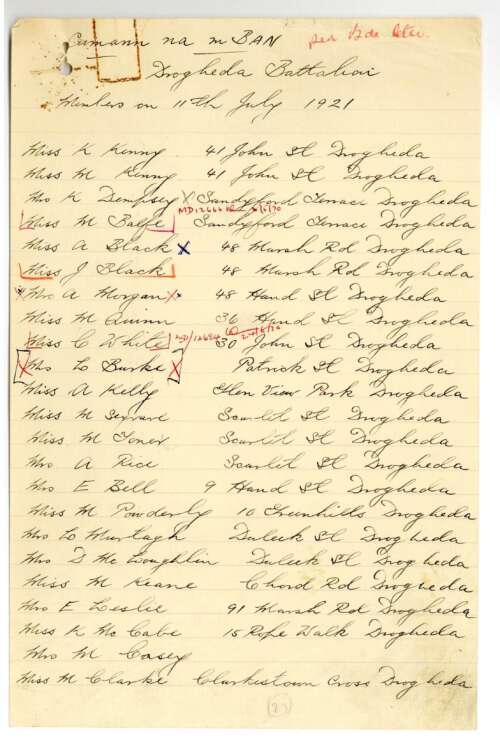 Cumann na mBAN
Drogheda Battalion
Members on 11th July 1921
Miss K Kenny 41 John St Drogheda
Miss M Kenny 41 John St Drogheda
Mrs K Dempsey X Sandyford Terrace Drogheda
Miss M Balfe Sandyford Terrace Drogheda
Miss A Black X 48 Marsh Rd Drogheda
Miss J Black 48 Marsh Rd Drogheda
Mrs A Morgan X 48 Hand St Drogheda
Miss M Quinn 36 Hand St Drogheda
Miss C White 30 John St Drogheda
X Mrs L Burke X Patrick St Drogheda
Miss A Kelly Glen View Park Drogheda
Miss M Scarlet St Drogheda
Miss M Toner Scarlet St Drogheda
Mrs A Rice Scarlet St Drogheda
Mrs E Bell 9 Hand St Drogheda
Miss M Powderly 10 Greenhills Drogheda
Mrs L Murtagh Duleek St Drogheda
Mrs D Mc Loughlin Duleek St Drogheda
Miss M Keane Chord Rd Drogheda
Mrs E Leslie 91 Marsh Rd Drogheda
Miss K Mc Cabe 15 Rope Walk Drogheda
Mrs M Casey
Miss M Clarke Clarkestown Cross Drogheda